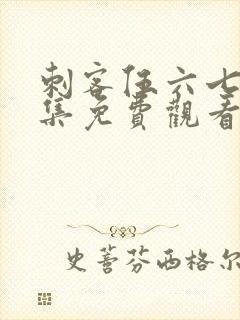 刺客伍六七
集免費觀看
史蒈芬西格尔